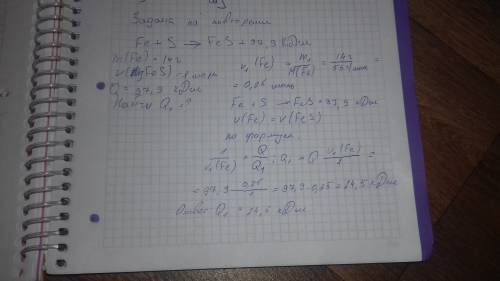 Задача на повторение
Fe + S → FeS + 97,9 кДж
m(Fe) = 14г
ν(FeS) = 1 моль
Q = 97,9 кДж
Найти Q₁ - ?
ν₁(Fe) = m₁/M(Fe) = 14г/56г/моль =
= 0,25 моль
Fe + S → FeS + 97,9 кДж
ν(Fe) = ν(FeS)
по формуле
1/ν₁(Fe) = Q/Q₁; Q₁ = Q · ν₁(Fe)/1 =
= 97,9 · 0,25/1 = 97,9 · 0,25 = 24,5 кДж
Ответ Q₁ = 24,5 кДж